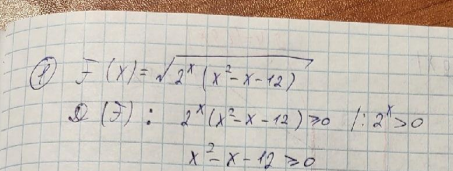 ① F(x)=√(2ˣ(x²-x-12))
D(F): 2ˣ(x²-x-12)⩾0 /:2ˣ>0
x²-x-12⩾0